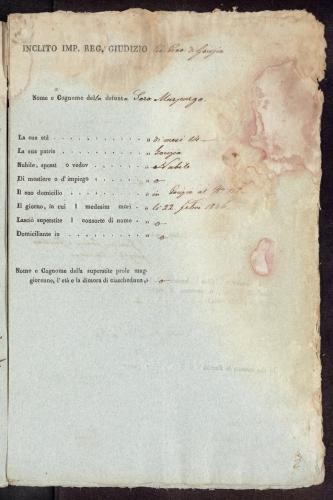 INCLITO IMP. REG. GIUDIZIO
Nome e Cognome della defunta Sara Morpurgo
La sua età . . . . . . . . . „ di mesi
La sua patria . . . . . . . . „ Gorizia
Nubile, sposat o vedov . . . . . „ Nubile
Di mestiere o d'impiego . . . . . „ o
Il suo domicilio . . . . . . . „ in Gorizia al N°
Il giorno, in cui l medesim morì . . „ li 22 febro
Lasciò superstite l consorte di nome . . „ o
Domiciliante in . . . . . . . „ o
Nome e Cognome della superstite prole mag-
giorenne, l'età e la dimora di ciascheduna, „ o